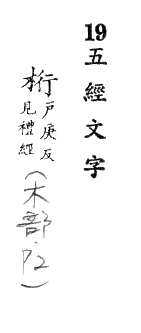 19五經文字
桁戶庚反
見禮經
(木部.P2)